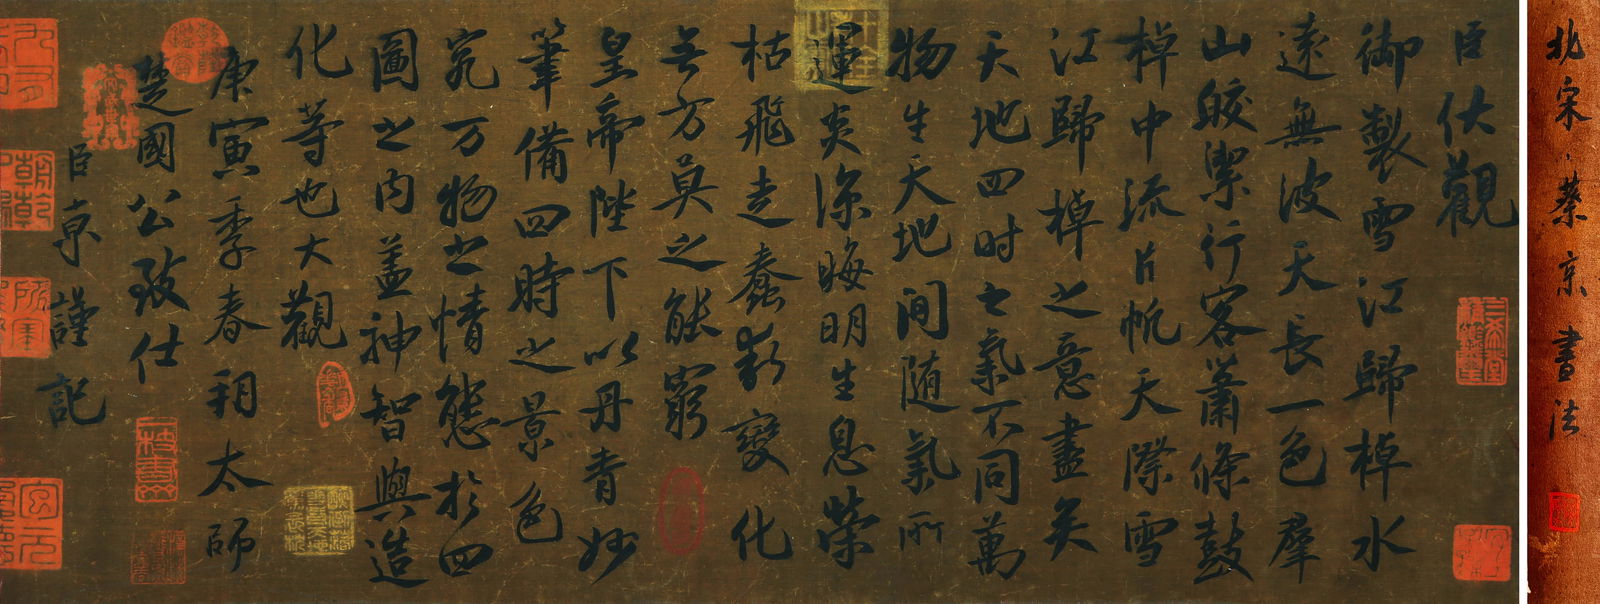 臣伏觀
御製雪江歸棹水
遠無波天長一色群
山皎潔行客蕭條鼓
棹中流片帆天際雪
江歸棹之意盡矣
天地四时之氣不同萬
物生天地間随氣所
運炎涼晦明生息榮
枯飛走蠢動變化
無方莫之能窮
皇帝陛下以丹青妙
筆備四時之景色
究万物之情態於四
圖之内盖神智與造
化等也大觀
庚寅季春朔太師
楚國公致仕
臣京謹記
北宋·蔡京書法